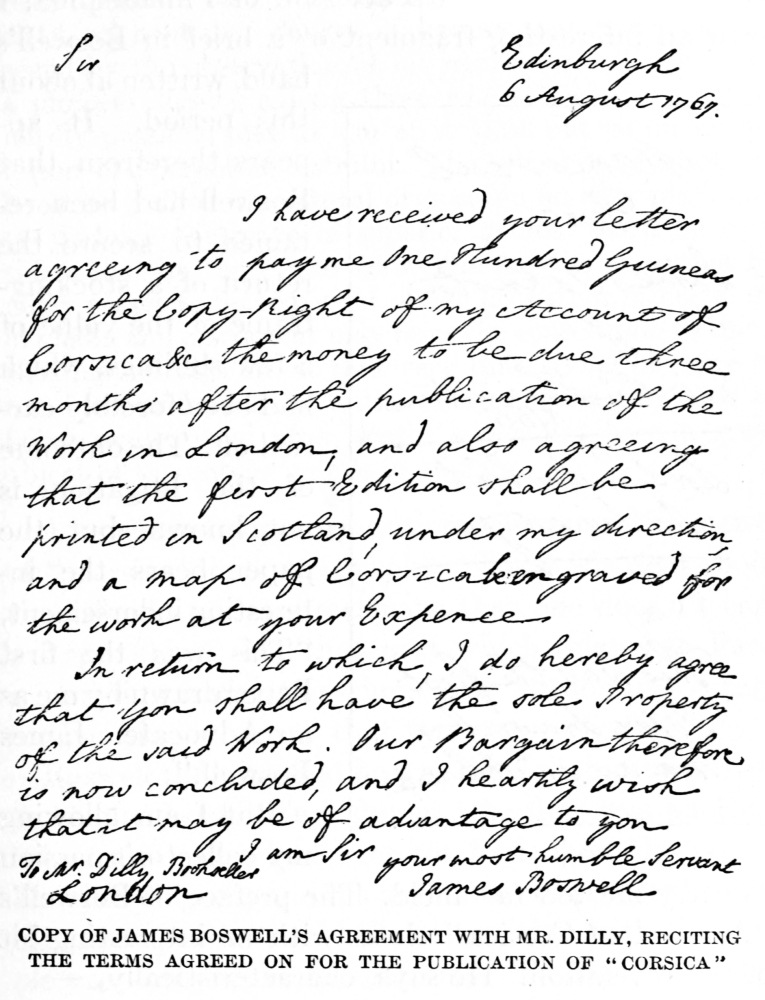 Sir
Edinburgh
6 August 1767.
I have received your letter
agreeing to pay me One Hundred Guineas
for the Copy-Right of my Account of
Corsica &c. the money to be due three
months after the publication of the
Work in London, and also agreeing
that the first Edition shall be
printed in Scotland, under my direction,
and a map of Corsica be engraved for
the work at your Expence.
In return to which, I do hereby agree
that you shall have the sole Property
of the said Work. Our Bargain therefore
is now concluded, and I heartily wish
that it may be of advantage to you
I am Sir your most humble Servant
To Mr. Dilly Bookseller
London
James Boswell
COPY OF JAMES BOSWELL'S AGREEMENT WITH MR. DILLY, RECITING
THE TERMS AGREED ON FOR THE PUBLICATION OF "CORSICA"